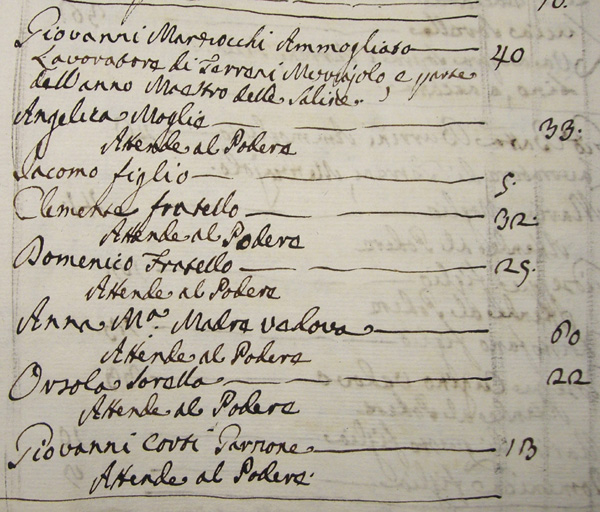 Giovanni Marrocchi Ammogliato 40
Lavoratore di Terreni Mezzajolo e parte
dell'anno Maestro delle Saline.
Angelica Moglie 33.
Attende al Podere
Iacomo figlio 5.
Clemente fratello 32
Attende al Podere
Domenico Fratello 25.
Attende al Podere
Anna Mª. Madre vedova 60
Attende al Podere
Orsola Sorella 22
Attende al Podere
Giovanni Corti Garzone 13
Attende al Podere.